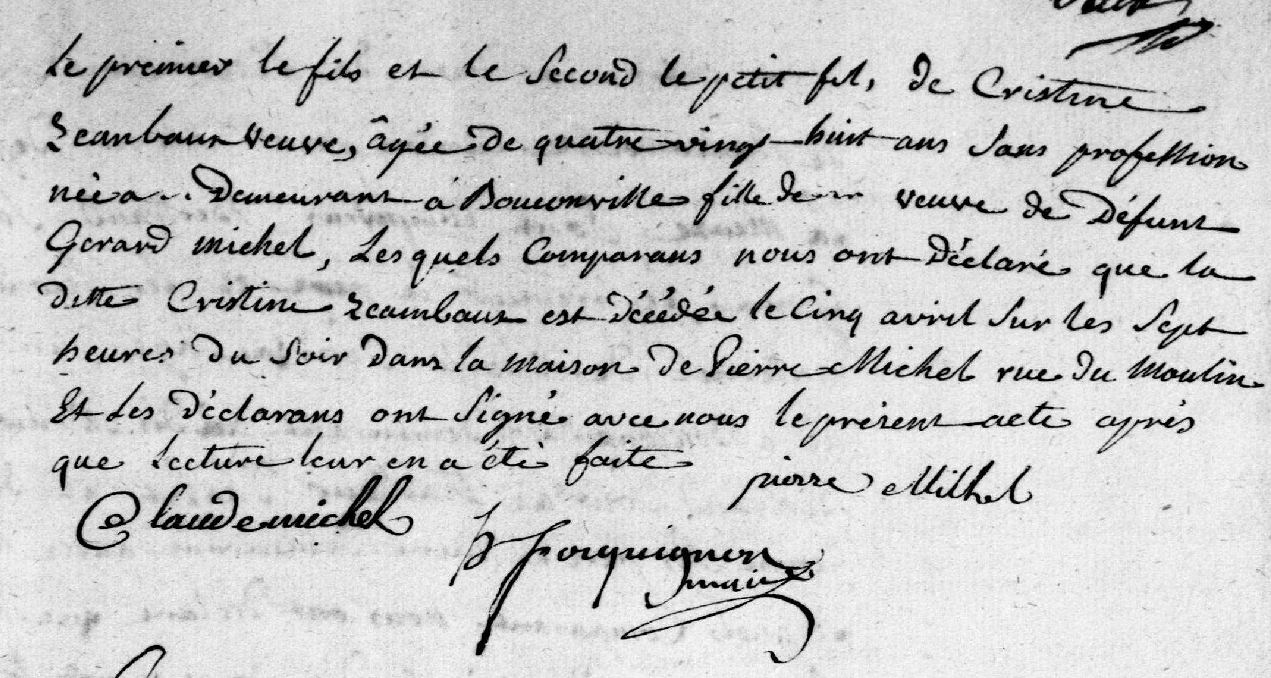 Le premier le fils et le second le petit fil, de Cristine
Zeanbaux veuve, âgée de quatre vingt huit ans sans profession
née a .. Demeurant a Bouconville fille de — veuve de Défunt
Gerard michel, Les quels Comparans nous ont Déclaré que la
ditte Cristine Zeambaux est décédée le Cinq avril sur les sept
heures du soir dans la maison de Pierre Michel rue du Moulin
Et Les Déclarans ont signé avec nous le présent acte après
que Lecture leur en a été faite
pierre Milhel
Claude michel
forquignon
maire